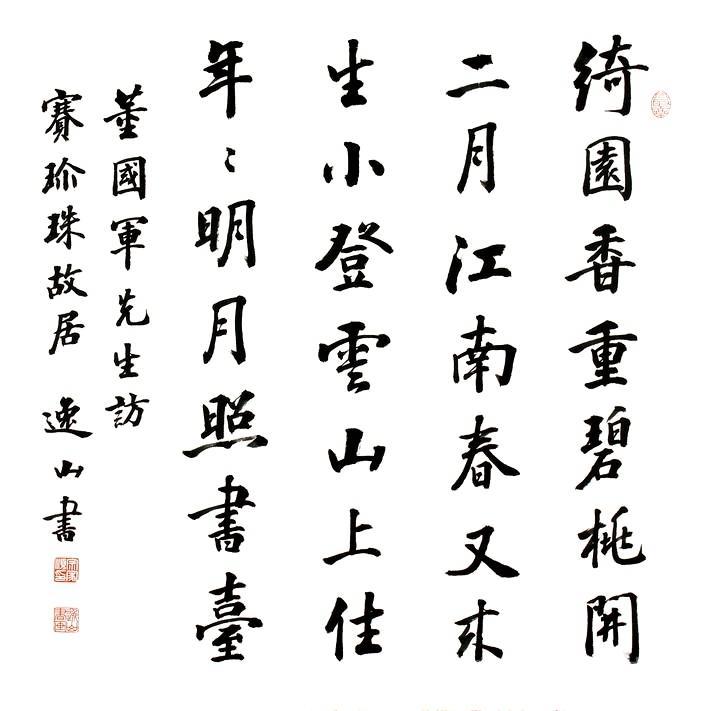 綺園香重碧桃開
二月江南春又來
生小登雲山上住
年〻明月照書臺
董國軍先生訪
賽珍珠故居 逸山書